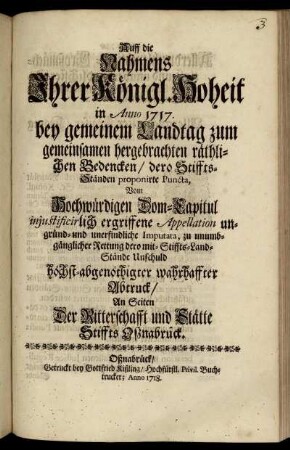 3
Auff die
Nahmens
Ihrer Königl. Hoheit
in Anno 1717.
bey gemeinem Landtag zum
gemeinsamen hergebrachten räthli-
chen Bedencken / dero Stiffts-
Ständen proponirte Puncta,
Vom
Hochwürdigen Dom-Capitul
injustificirlich ergriffene Appellation un-
gründ- und unerfindliche Imputata, zu unumb-
gänglicher Rettung dero mit-Stiffts-Land-
Stände Unschuld
höchst-abgenöthigter wahrhaffter
Abtruck /
An Seiten
Der Ritterschafft und Stätte
Stiffts Oßnabrück.
Oßnabrück /
Getruckt bey Gottfried Kißling / Hochfürstl. Privil. Buch-
trucker / Anno 1718.